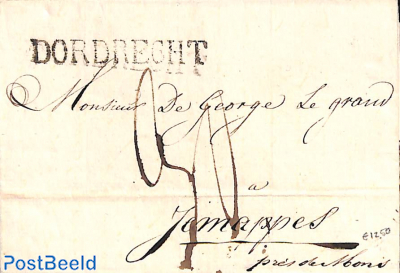 DORDRECHT
Monsieur De George Le grand
a
Jemappes
près de Mons
€12,50
PostBeeld